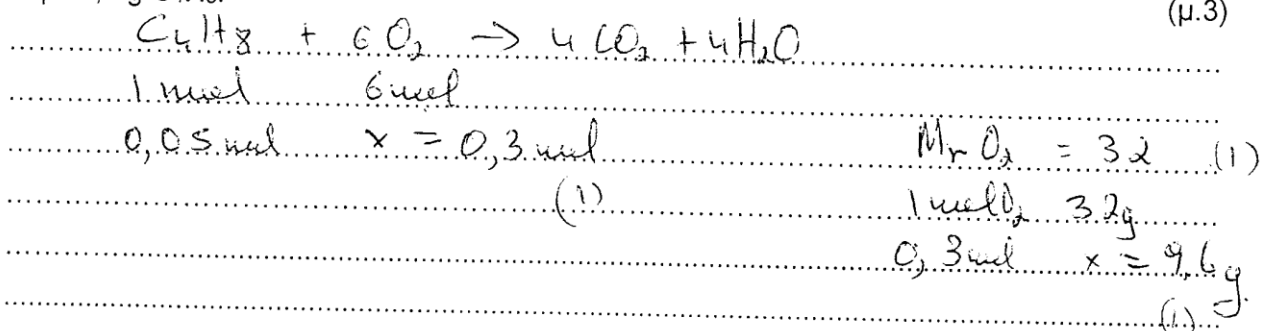 (μ.3)
C₄H₈ + 6O₂ → 4CO₂ + 4H₂O
1 mol 6 mol
0,05 mol x = 0,3 mol Mr O₂ = 32 (1)
(1) 1 mol O₂ 32g
0,3 mol x = 9,6 g.
(1)